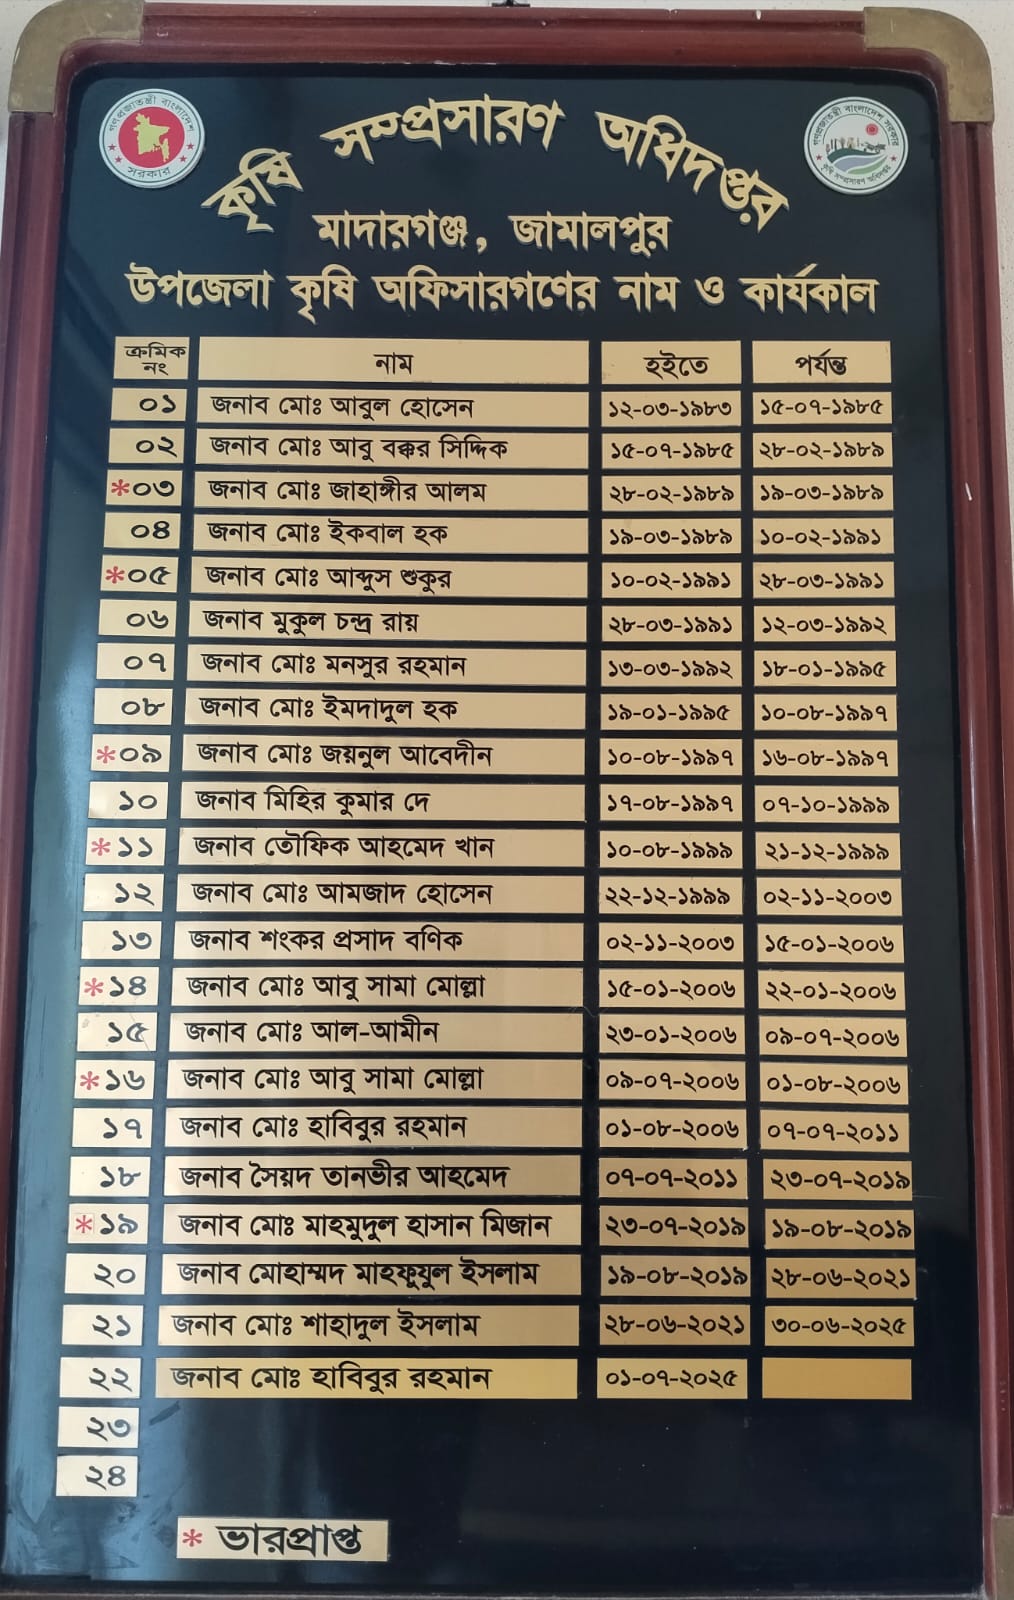 গণপ্রজাতন্ত্রী বাংলাদেশ
সরকার
গণপ্রজাতন্ত্রী বাংলাদেশ সরকার
কৃষি সম্প্রসারণ অধিদপ্তর
কৃষি সম্প্রসারণ অধিদপ্তর
মাদারগঞ্জ, জামালপুর
উপজেলা কৃষি অফিসারগণের নাম ও কার্যকাল
ক্রমিক নং নাম হইতে পর্যন্ত
০১ জনাব মোঃ আবুল হোসেন ১২-০৩-১৯৮৩ ১৫-০৭-১৯৮৫
০২ জনাব মোঃ আবু বক্কর সিদ্দিক ১৫-০৭-১৯৮৫ ২৮-০২-১৯৮৯
*০৩ জনাব মোঃ জাহাঙ্গীর আলম ২৮-০২-১৯৮৯ ১৯-০৩-১৯৮৯
০৪ জনাব মোঃ ইকবাল হক ১৯-০৩-১৯৮৯ ১০-০২-১৯৯১
*০৫ জনাব মোঃ আব্দুস শুকুর ১০-০২-১৯৯১ ২৮-০৩-১৯৯১
০৬ জনাব মুকুল চন্দ্র রায় ২৮-০৩-১৯৯১ ১২-০৩-১৯৯২
০৭ জনাব মোঃ মনসুর রহমান ১৩-০৩-১৯৯২ ১৮-০১-১৯৯৫
০৮ জনাব মোঃ ইমদাদুল হক ১৯-০১-১৯৯৫ ১০-০৮-১৯৯৭
*০৯ জনাব মোঃ জয়নুল আবেদীন ১০-০৮-১৯৯৭ ১৬-০৮-১৯৯৭
১০ জনাব মিহির কুমার দে ১৭-০৮-১৯৯৭ ০৭-১০-১৯৯৯
*১১ জনাব তৌফিক আহমেদ খান ১০-০৮-১৯৯৯ ২১-১২-১৯৯৯
১২ জনাব মোঃ আমজাদ হোসেন ২২-১২-১৯৯৯ ০২-১১-২০০৩
১৩ জনাব শংকর প্রসাদ বণিক ০২-১১-২০০৩ ১৫-০১-২০০৬
*১৪ জনাব মোঃ আবু সামা মোল্লা ১৫-০১-২০০৬ ২২-০১-২০০৬
১৫ জনাব মোঃ আল-আমীন ২৩-০১-২০০৬ ০৯-০৭-২০০৬
*১৬ জনাব মোঃ আবু সামা মোল্লা ০৯-০৭-২০০৬ ০১-০৮-২০০৬
১৭ জনাব মোঃ হাবিবুর রহমান ০১-০৮-২০০৬ ০৭-০৭-২০১১
১৮ জনাব সৈয়দ তানভীর আহমেদ ০৭-০৭-২০১১ ২৩-০৭-২০১৯
*১৯ জনাব মোঃ মাহমুদুল হাসান মিজান ২৩-০৭-২০১৯ ১৯-০৮-২০১৯
২০ জনাব মোহাম্মদ মাহফুযুল ইসলাম ১৯-০৮-২০১৯ ২৮-০৬-২০২১
২১ জনাব মোঃ শাহাদুল ইসলাম ২৮-০৬-২০২১ ৩০-০৬-২০২৫
২২ জনাব মোঃ হাবিবুর রহমান ০১-০৭-২০২৫
২৩
২৪
* ভারপ্রাপ্ত